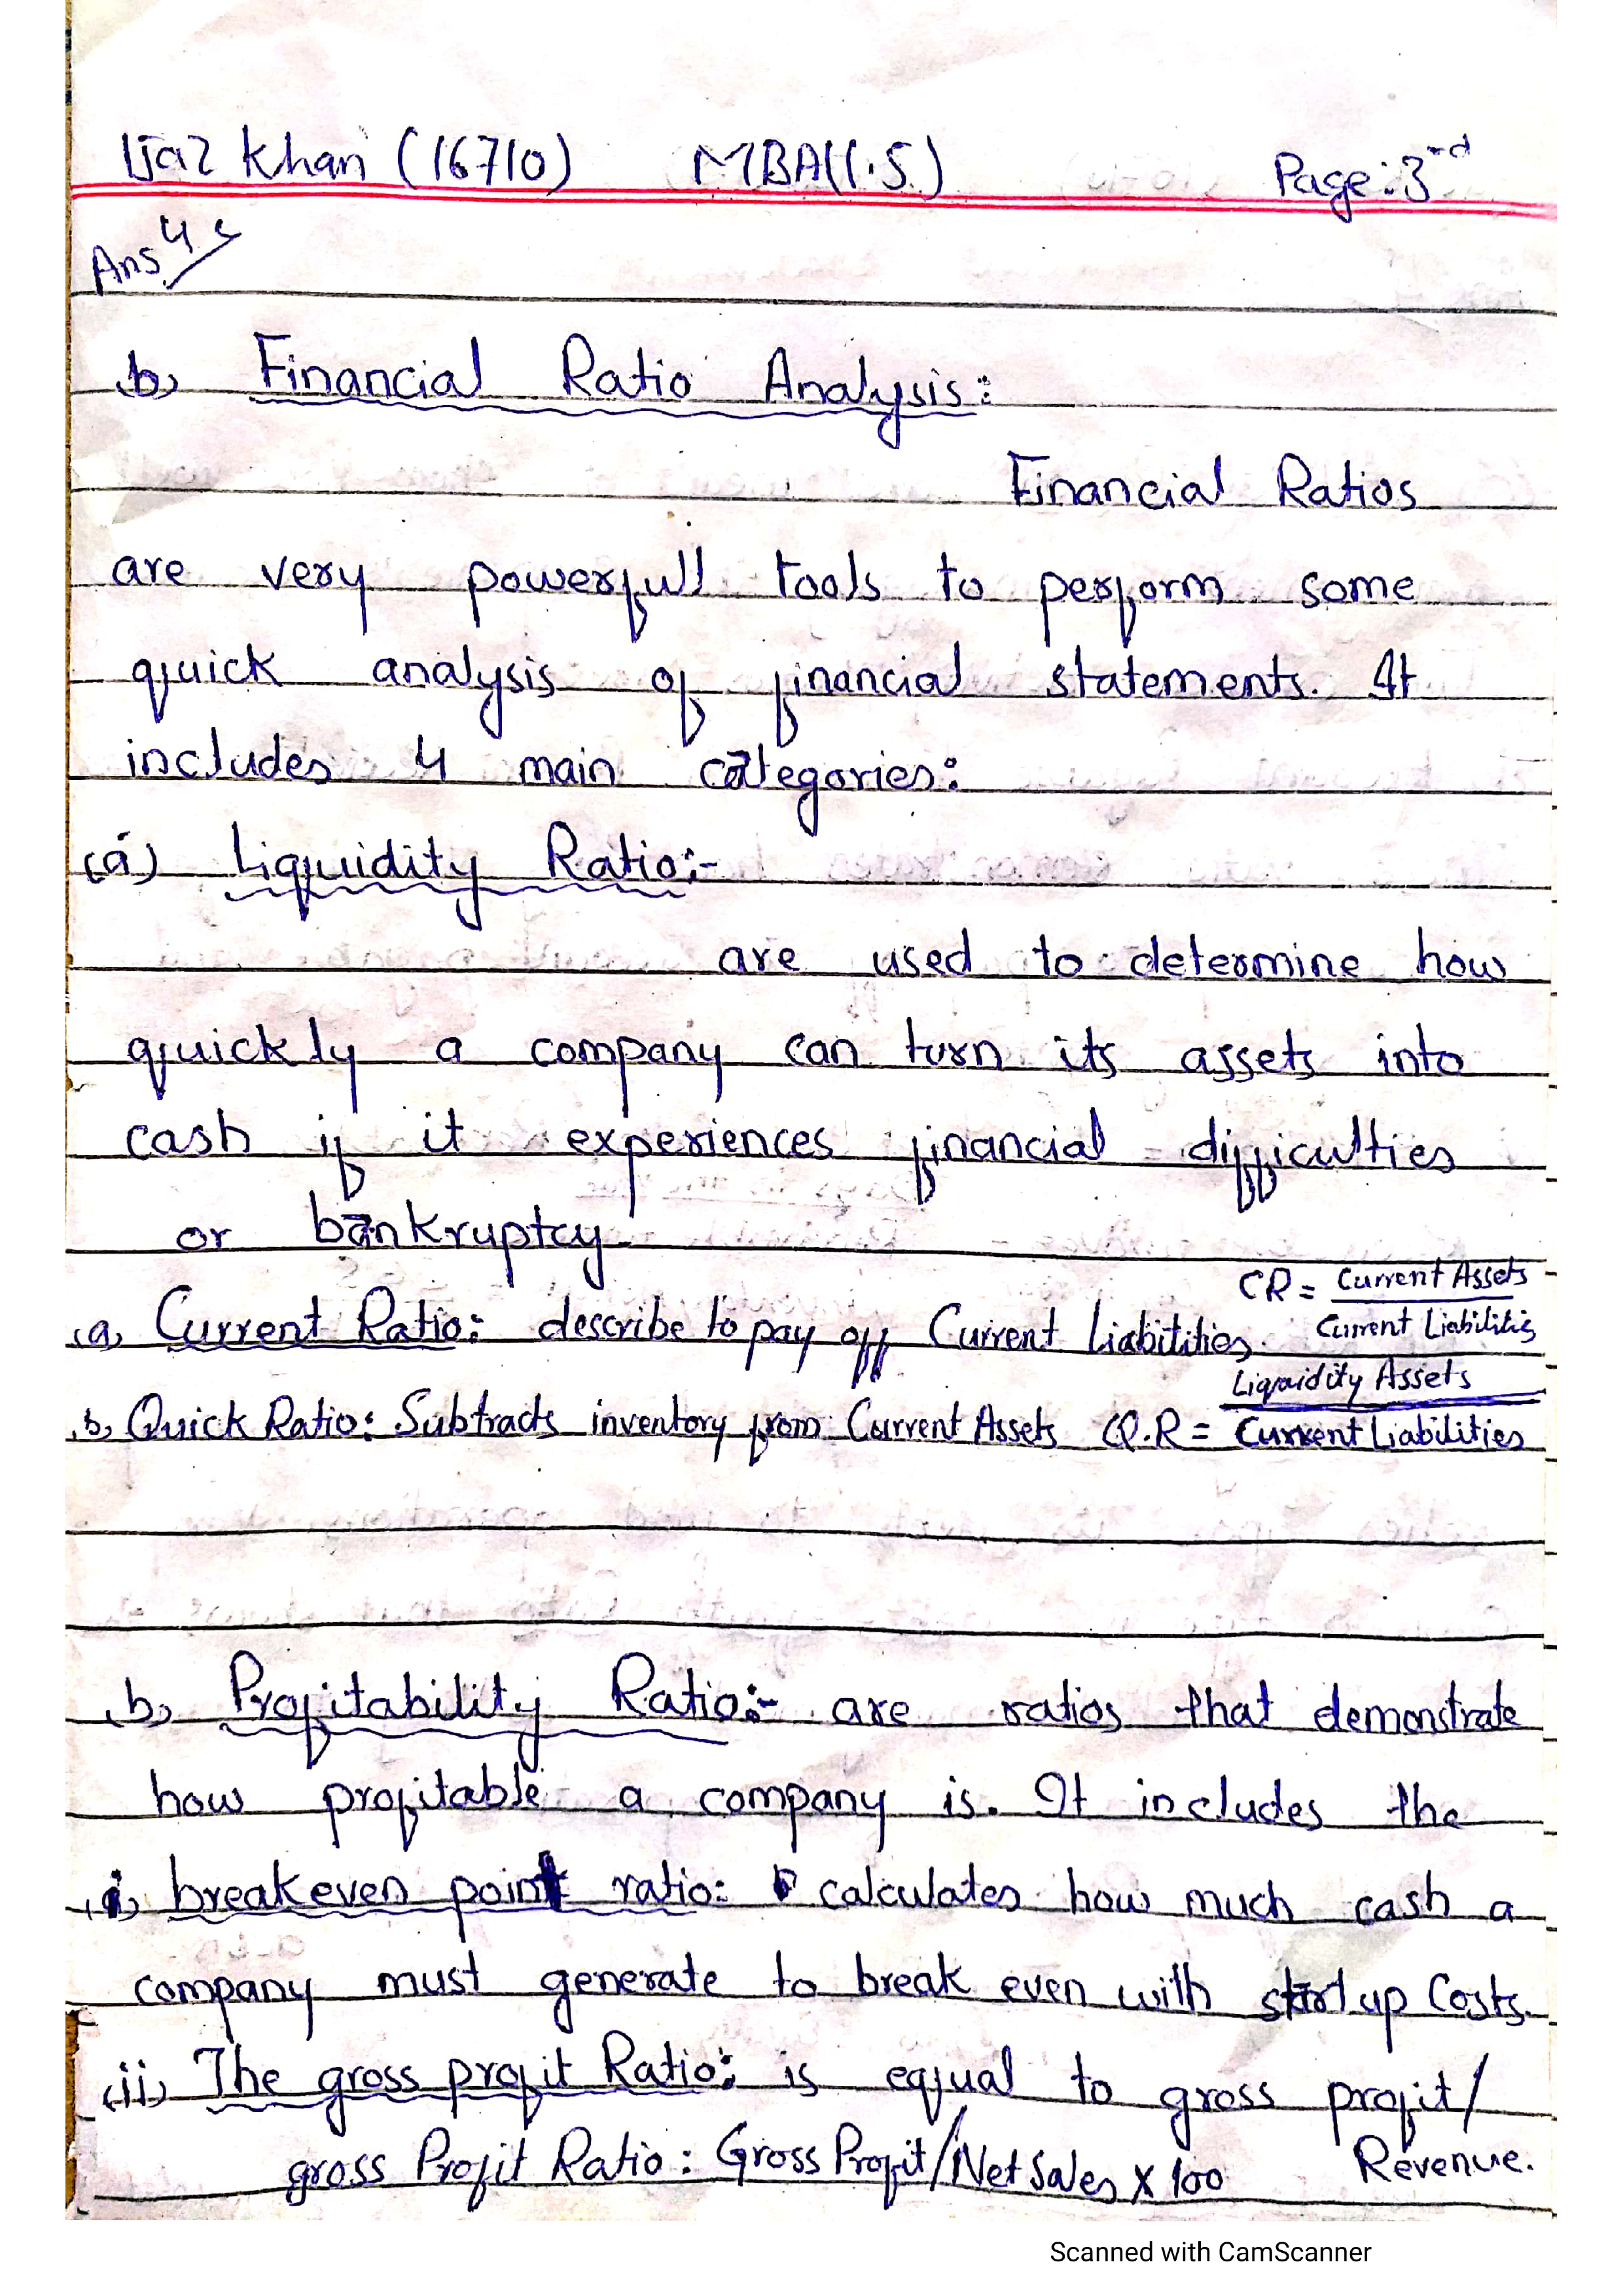 Ijaz Khan (16710) MBA(I.S) Page:3rd
Ans 4
b) Financial Ratio Analysis:
Financial Ratios
are very powerfull tools to perform some
quick analysis of financial statements. It
includes 4 main categories:
(a) Liquidity Ratio:-
are used to determine how
quickly a company can turn its assets into
cash if it experiences financial difficulties
or bankruptcy.
CR = Current Assets
(a) Current Ratio: describe to pay off Current Liabitities. Current Liabilities
Liquidity Assets
b) Quick Ratio: Subtracts inventory from Current Assets Q.R = Current Liabilities
b) Profitability Ratio:- are ratios that demonstrate
how profitable a company is. It includes the
i) breakeven point ratio: calculates how much cash a
company must generate to break even with start up Costs.
(ii) The gross profit Ratio: is equal to gross profit/
gross Profit Ratio: Gross Profit/Net Sales x 100 Revenue.
Scanned with CamScanner